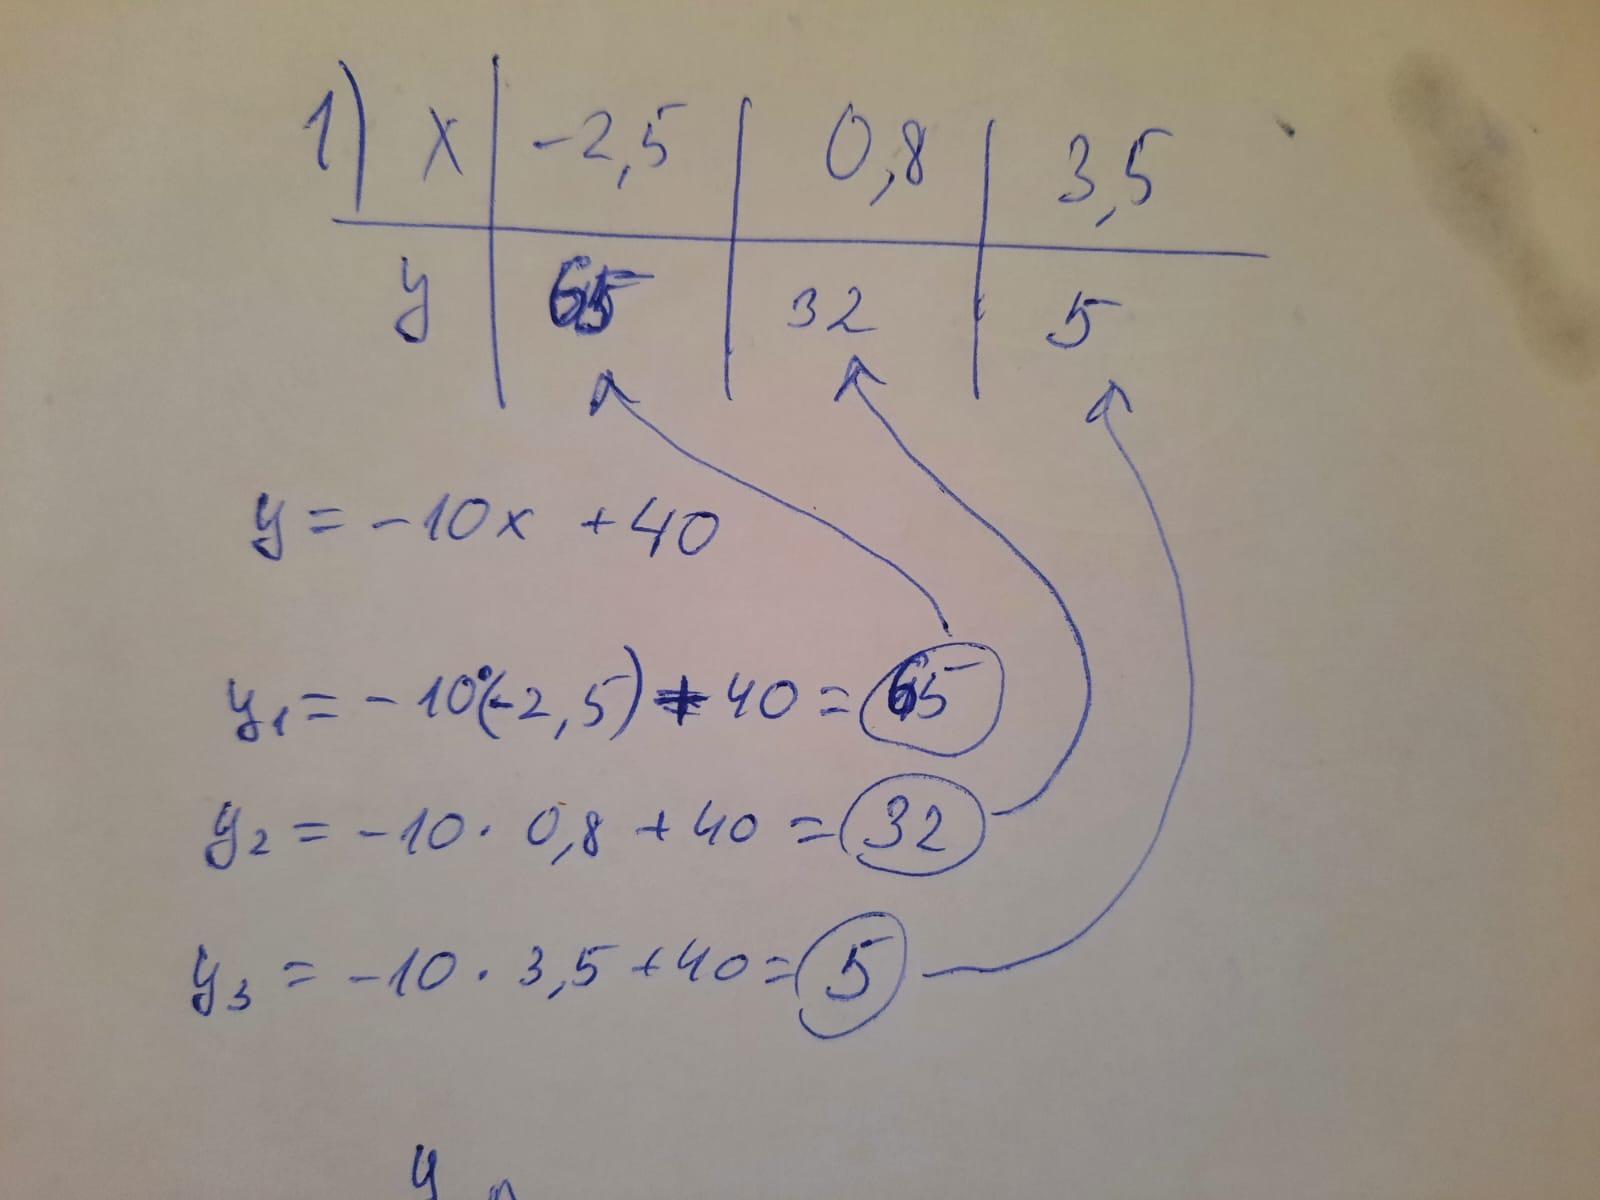 1) x | -2,5 | 0,8 | 3,5
y | 65 | 32 | 5
y = -10x + 40
y₁ = -10·(-2,5) + 40 = 65
y₂ = -10 · 0,8 + 40 = 32
y₃ = -10 · 3,5 + 40 = 5
y